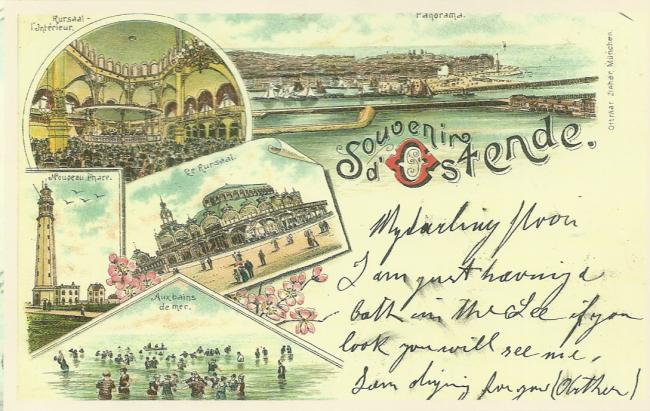 Kursaal -
l'Intérieur.
Panorama.
Ottmar Zieher, München.
Souvenir
d'Ostende.
Le Kursaal.
Nouveau Phare.
Aux bains
de mer.
My darling
I am just having a
bath in the See if you
look you will see me,
I am diging for you (Other)